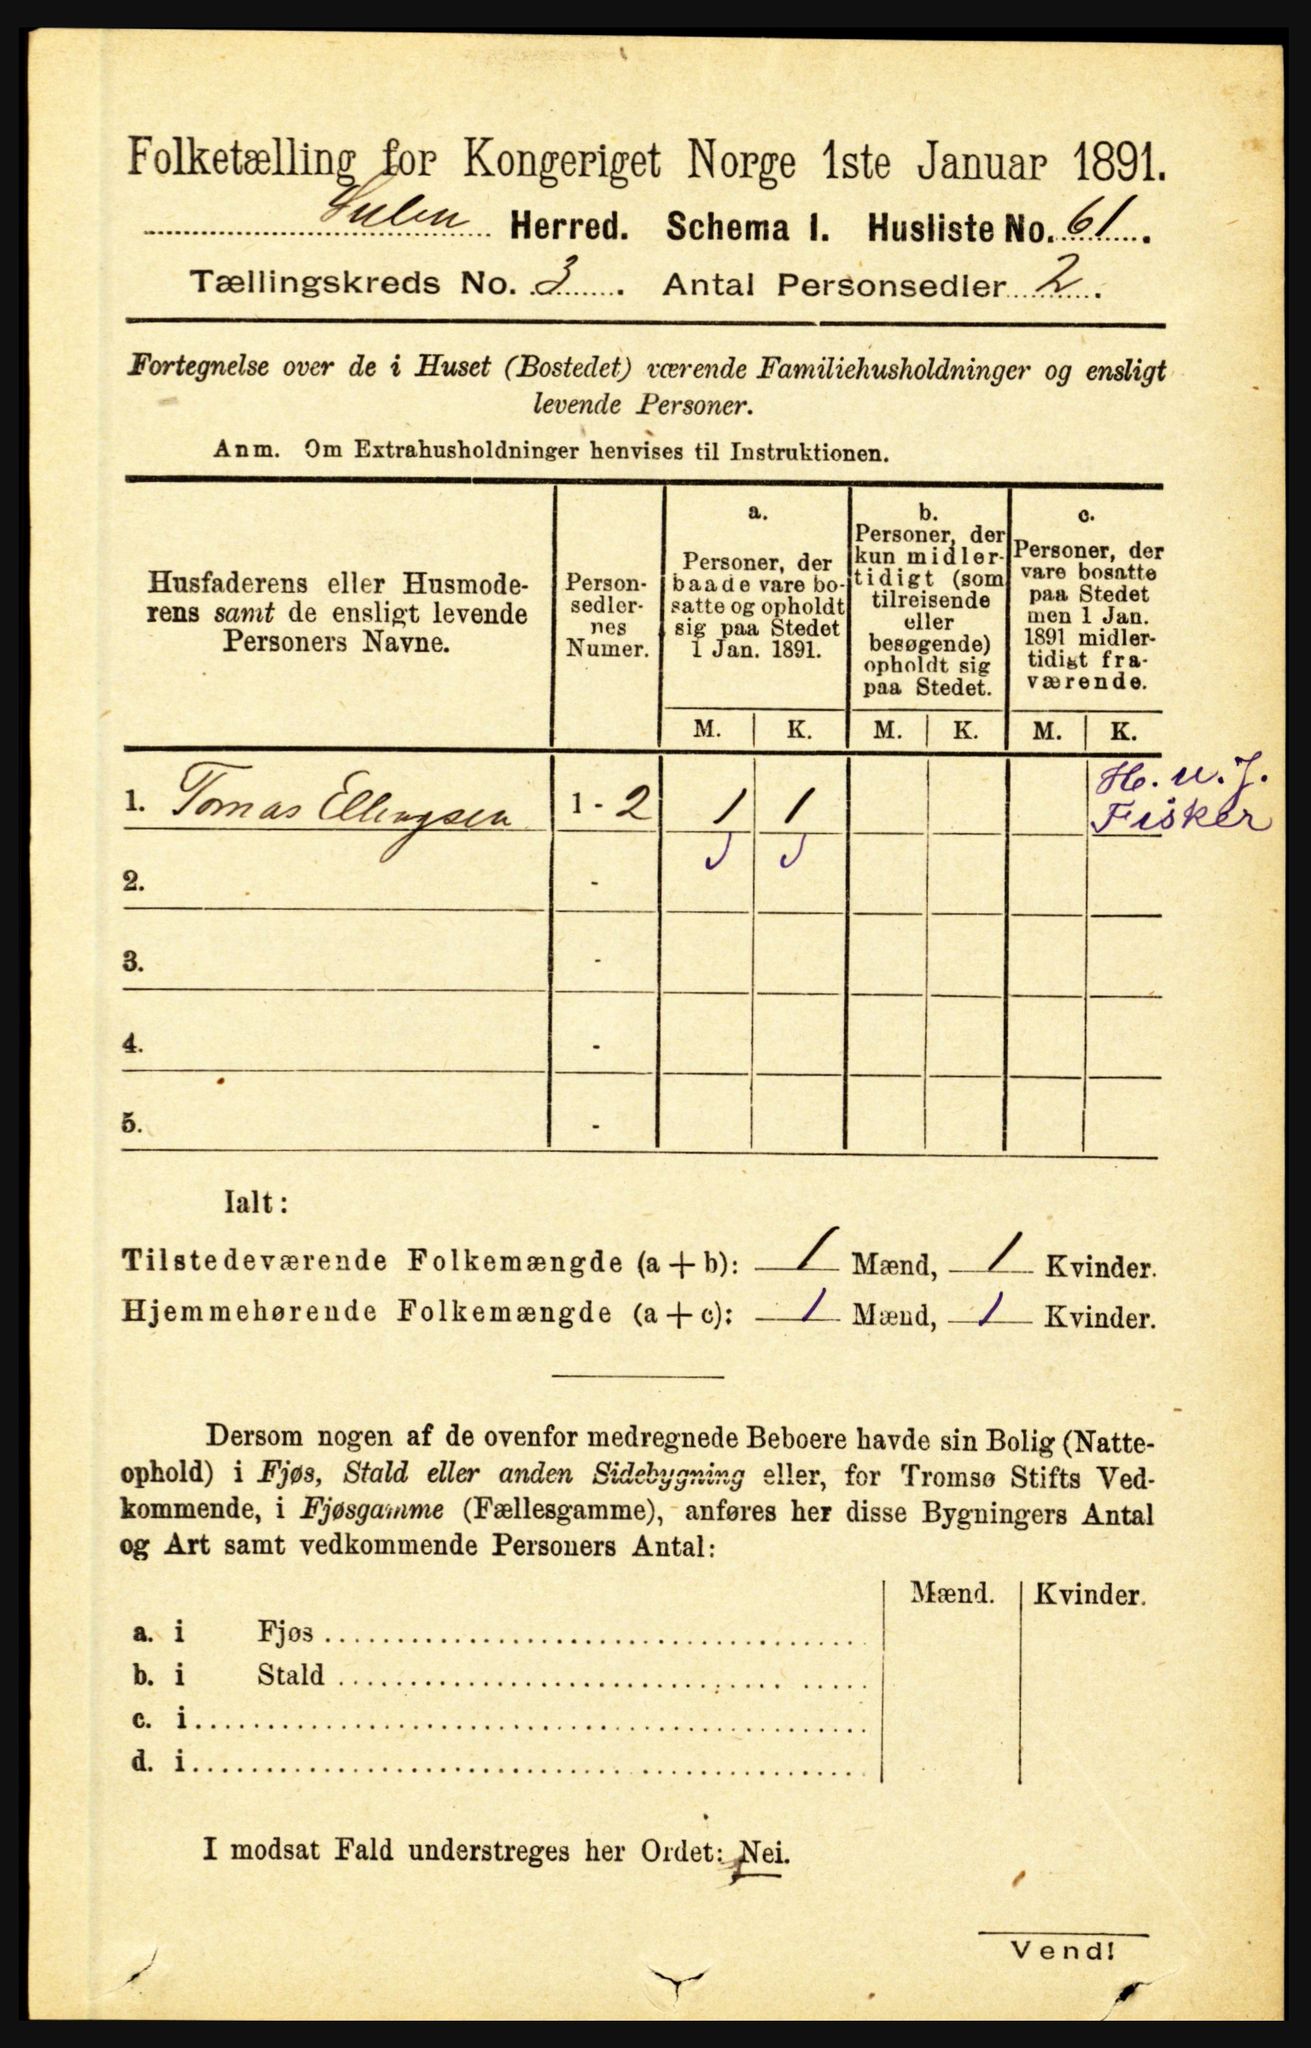 Folketælling for Kongeriget Norge 1ste Januar 1891.
Sulen Herred. Schema I. Husliste No. 61.
Tællingskreds No. 3. Antal Personsedler 2.
Fortegnelse over de i Huset (Bostedet) værende Familiehusholdninger og ensligt
levende Personer.
Anm. Om Extrahusholdninger henvises til Instruktionen.
Husfaderens eller Husmode-
rens samt de ensligt levende
Personers Navne.
Person-
sedler-
nes
Numer.
a.
Personer, der
baade vare bo-
satte og opholdt
sig paa Stedet
1 Jan. 1891.
b.
Personer, der
kun midler-
tidigt (som
tilreisende
eller
besøgende)
opholdt sig
paa Stedet.
c.
Personer, der
vare bosatte
paa Stedet
men 1 Jan.
1891 midler-
tidigt fra-
værende.
M. K. M. K. M. K.
1. Tomas Ellingsen 1 - 2 1 1 H. u. J.
Fisker
2. -
3. -
4. -
5. -
Ialt:
Tilstedeværende Folkemængde (a + b): 1 Mænd, 1 Kvinder.
Hjemmehørende Folkemængde (a + c): 1 Mænd, 1 Kvinder.
Dersom nogen af de ovenfor medregnede Beboere havde sin Bolig (Natte-
ophold) i Fjøs, Stald eller anden Sidebygning eller, for Tromsø Stifts Ved-
kommende, i Fjøsgamme (Fællesgamme), anføres her disse Bygningers Antal
og Art samt vedkommende Personers Antal:
Mænd. Kvinder.
a. i Fjøs
b. i Stald
c. i
d. i
I modsat Fald understreges her Ordet: Nei.
Vend!